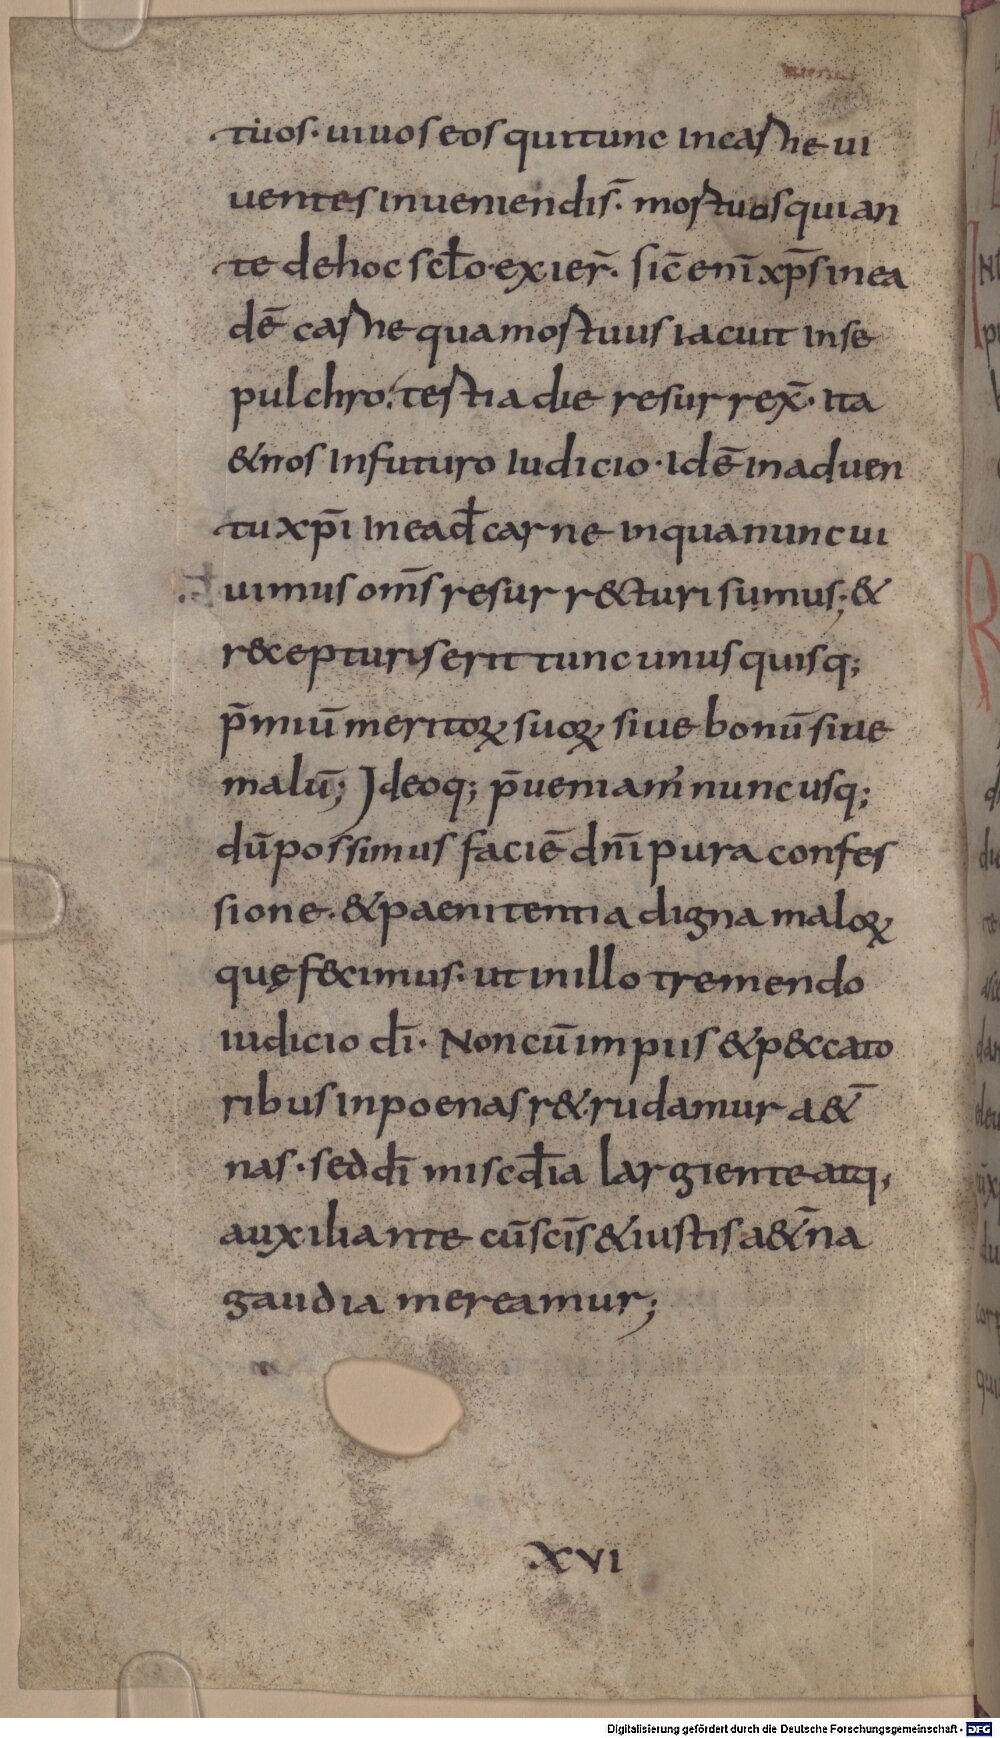 tuos· uiuos eos qui tunc in carne ui
uentes inueniendi s̄· mortuos qui an
te de hoc sc̄lo exier̄· sic̄ eni̅ xp̄s in ea
dē carne qua mortuus iacuit in se
pulchro· tertia die resurrex̄· ita
& nos in futuro iudicio· Idē in aduen
tu xp̄i in ead̄ carne in qua nunc ui
uimus om̄s resurr&turi sumus; &
r&cepturis erit tunc unus quisq;
p̄miū meritoꝝ suoꝝ siue bonū siue
malū; Ideoq; p̄ueniam̄ nunc usq;
dū possimus faciē dn̄i pura confes
sione· & paenitentia digna maloꝝ
quę f&cimus· ut in illo tremendo
iudicio dī· Non cū impiis & p&ccato
ribus in poenas r&rudamur a&̄
nas· sed dī misc̄dia largiente atq;
auxiliante cū sc̄is & iustis a&̄na
gaudia mereamur;
XVI
Digitalisierung gefördert durch die Deutsche Forschungsgemeinschaft · DFG